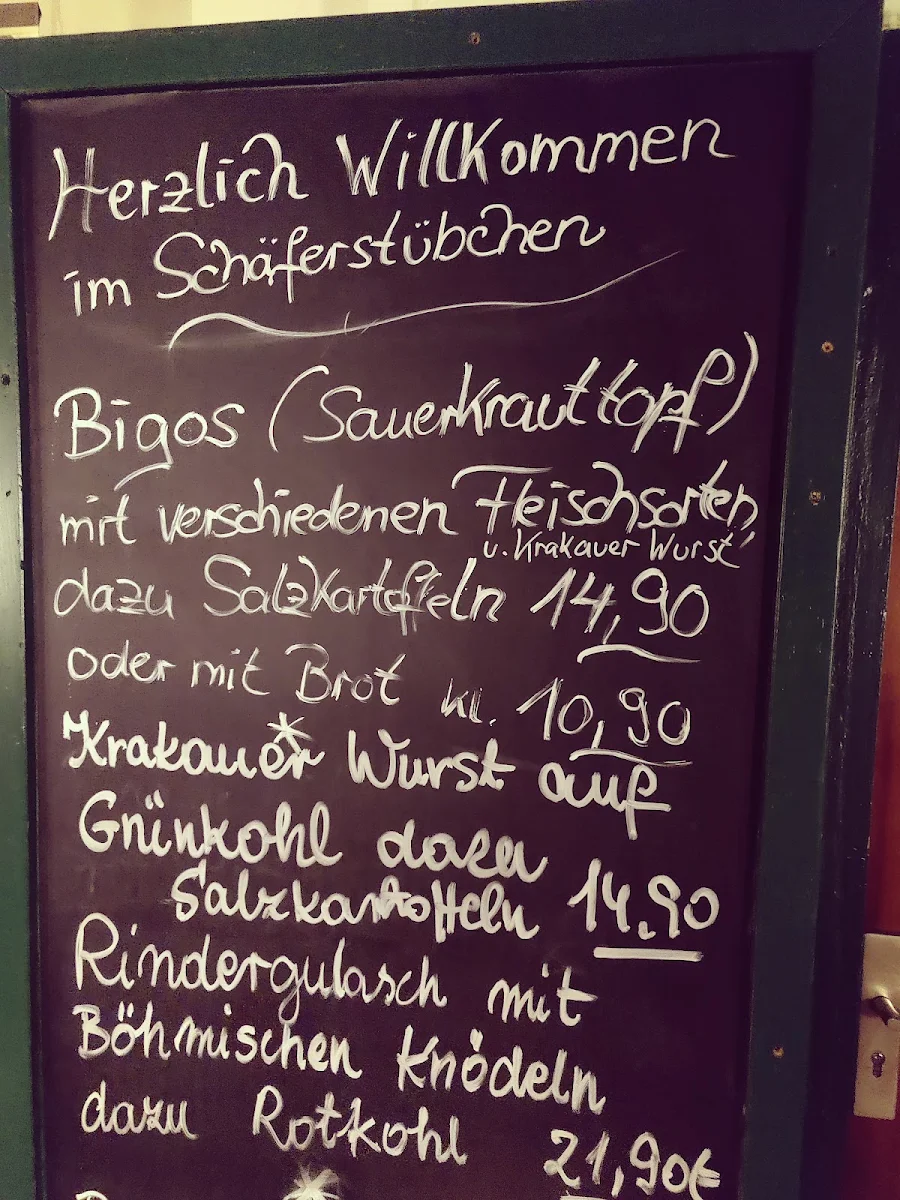 Herzlich Willkommen
im Schäferstübchen
Bigos (Sauerkrauttopf)
mit verschiedenen Fleischsorten
u. Krakauer Wurst
dazu Salzkartoffeln 14,90
oder mit Brot kl. 10,90
Krakauer Wurst auf
Grünkohl dazu
Salzkartoffeln 14.90
Rindergulasch mit
Böhmischen Knödeln
dazu Rotkohl 21,90€